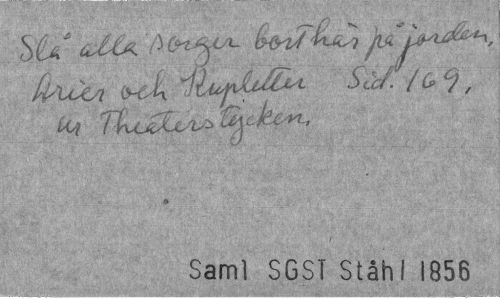 Slå alla sorger bort här på jorden,
Arier och Kupletter Sid. 169,
ur Theaterstycken.
Saml SGST Ståhl 1856